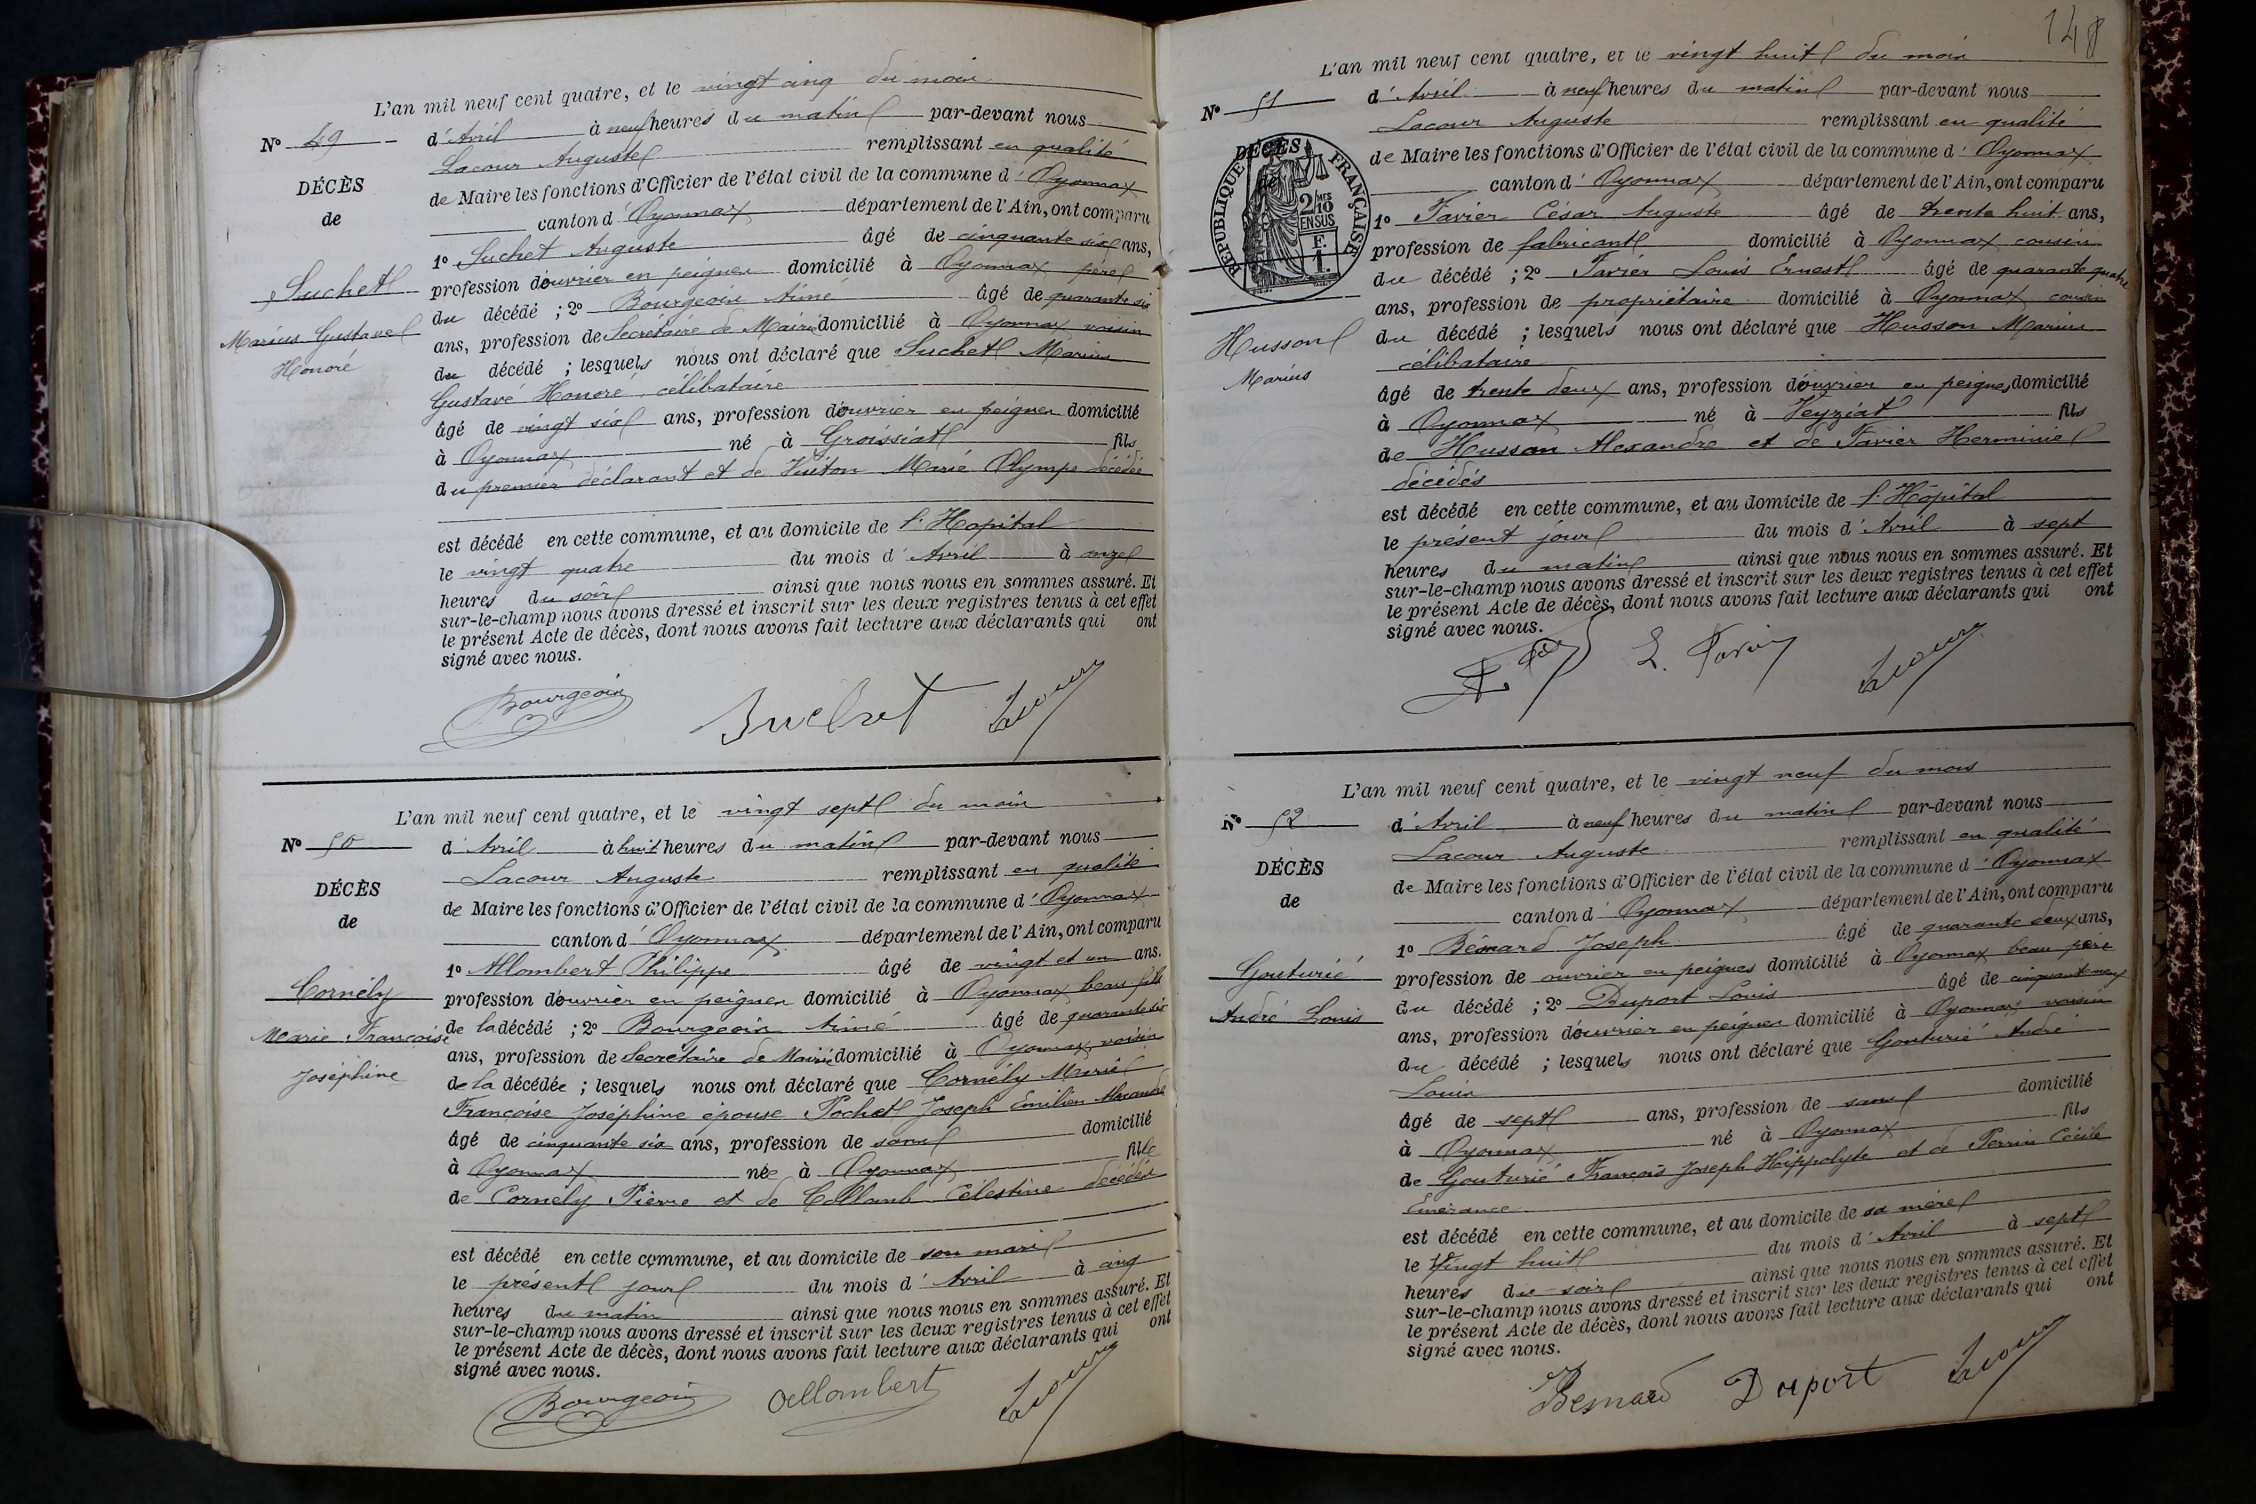 L'an mil neuf cent quatre, et le vingt cinq du mois
N° 49
d'Avril à neuf heures du matin par-devant nous
Lacour Auguste remplissant en qualité
DÉCÈS
de Maire les fonctions d'Officier de l'état civil de la commune d'Oyonnax
de
canton d'Oyonnax département de l'Ain, ont comparu
1° Suchet Auguste âgé de cinquante six ans,
Suchet
profession d'ouvrier en peignes domicilié à Oyonnax père
du décédé ; 2° Bourgeois Aimé âgé de quarante six
Marius Gustave
ans, profession de Secrétaire de Mairie domicilié à Oyonnax voisin
Honoré
du décédé ; lesquels nous ont déclaré que Suchet Marius
Gustave Honoré, célibataire
âgé de vingt six ans, profession d'ouvrier en peignes domicilié
à Oyonnax né à Groissiat fils
du premier déclarant et de Marie Olympe décédée
est décédé en cette commune, et au domicile de l'Hopital
le vingt quatre du mois d'Avril à onze
heures du soir ainsi que nous nous en sommes assuré. Et
sur-le-champ nous avons dressé et inscrit sur les deux registres tenus à cet effet
le présent Acte de décès, dont nous avons fait lecture aux déclarants qui ont
signé avec nous.
Bourgeois Suchet Lacour
L'an mil neuf cent quatre, et le vingt sept du mois
N° 50
d'Avril à huit heures du matin par-devant nous
Lacour Auguste remplissant en qualité
DÉCÈS
de Maire les fonctions d'Officier de l'état civil de la commune d'Oyonnax
de
canton d'Oyonnax département de l'Ain, ont comparu
1° Allombert Philippe âgé de vingt et un ans.
Cornély
profession d'ouvrier en peignes domicilié à Oyonnax beau fils
Marie Françoise
de la décédé ; 2° Bourgeois Aimé âgé de quarante six
ans, profession de Secrétaire de Mairie domicilié à Oyonnax, voisin
Joséphine
de la décédée ; lesquels nous ont déclaré que Cornély Marie
Françoise Joséphine épouse Pochet Joseph Emilien Alexandre
âgé de cinquante six ans, profession de sans domicilié
à Oyonnax née à Oyonnax fille
de Cornély Pierre et de Collomb Célestine décédés
est décédé en cette commune, et au domicile de son mari
le présent jour du mois d'Avril à cinq
heures du matin ainsi que nous nous en sommes assuré. Et
sur-le-champ nous avons dressé et inscrit sur les deux registres tenus à cet effet
le présent Acte de décès, dont nous avons fait lecture aux déclarants qui ont
signé avec nous.
Bourgeois Allombert Lacour
148
L'an mil neuf cent quatre, et le vingt huit du mois
N° 51
d'Avril à neuf heures du matin par-devant nous
Lacour Auguste remplissant en qualité
DÉCÈS
RÉPUBLIQUE FRANÇAISE
2/10 MES EN SUS
F.
1.
de Maire les fonctions d'Officier de l'état civil de la commune d'Oyonnax
canton d'Oyonnax département de l'Ain, ont comparu
1° Favier César Auguste âgé de trente huit ans,
profession de fabricant domicilié à Oyonnax cousin
du décédé ; 2° Favier Louis Ernest âgé de quarante quatre
ans, profession de propriétaire domicilié à Oyonnax cousin
Husson
du décédé ; lesquels nous ont déclaré que Husson Marius
célibataire
Marius
âgé de trente deux ans, profession d'ouvrier en peignes domicilié
à Oyonnax né à Veyziat fils
de Husson Alexandre et de Favier Herminie
décédés
est décédé en cette commune, et au domicile de l'Hôpital
le présent jour du mois d'Avril à sept
heures du matin ainsi que nous nous en sommes assuré. Et
sur-le-champ nous avons dressé et inscrit sur les deux registres tenus à cet effet
le présent Acte de décès, dont nous avons fait lecture aux déclarants qui ont
signé avec nous.
L. Favier Lacour
L'an mil neuf cent quatre, et le vingt neuf du mois
N° 52
d'Avril à neuf heures du matin par-devant nous
Lacour Auguste remplissant en qualité
DÉCÈS
de Maire les fonctions d'Officier de l'état civil de la commune d'Oyonnax
de
canton d'Oyonnax département de l'Ain, ont comparu
1° Bésnard Joseph âgé de quarante deux ans,
Gouturié
profession de ouvrier en peignes domicilié à Oyonnax beau père
du décédé ; 2° Duport Louis âgé de cinquante neuf
André Louis
ans, profession d'ouvrier en peignes domicilié à Oyonnax voisin
du décédé ; lesquels nous ont déclaré que Gouturié André
Louis
âgé de sept ans, profession de sans domicilié
à Oyonnax né à Oyonnax fils
de Gouturié François Joseph Hippolyte et de Perrin Cécile
Emérance
est décédé en cette commune, et au domicile de sa mère
le Vingt huit du mois d'Avril à sept
heures du soir ainsi que nous nous en sommes assuré. Et
sur-le-champ nous avons dressé et inscrit sur les deux registres tenus à cet effet
le présent Acte de décès, dont nous avons fait lecture aux déclarants qui ont
signé avec nous.
Besnard Duport Lacour